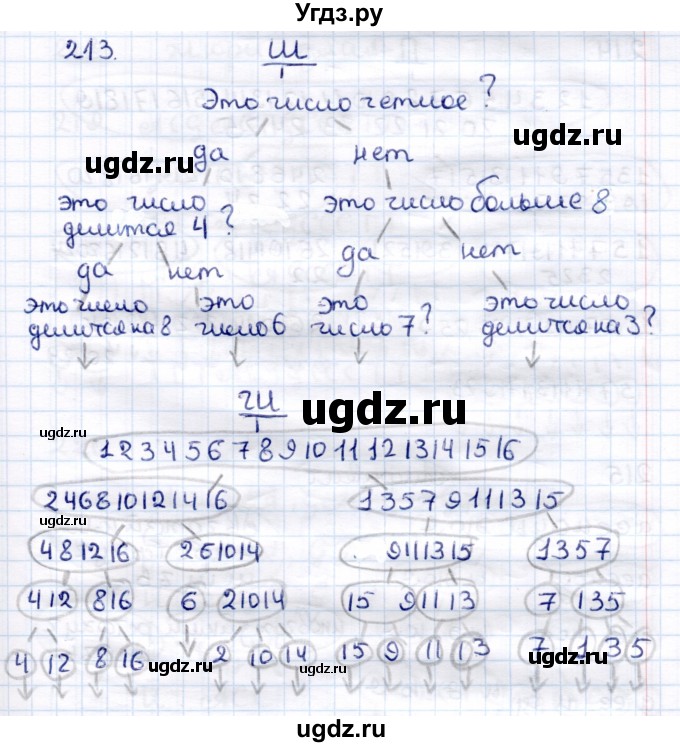 Угдз.ру
213. Ш
Это число четное?
да нет
ugdz.ru ugdz.ru
это число делится 4? это число больше 8
да нет да нет
это число делится на 8 это число 6 это число 7? это число делится на 3?
ugdz.ru ugdz.ru
ГШ
ugdz.ru
ugdz.ru
1 2 3 4 5 6 7 8 9 10 11 12 13 14 15 16
2 4 6 8 10 12 14 16 1 3 5 7 9 11 13 15
ugdz.ru ugdz.ru
4 8 12 16 2 6 10 14 9 11 13 15 1 3 5 7
4 12 8 16 6 2 10 14 15 9 11 13 7 1 3 5
4 12 8 16 2 10 14 15 9 11 13 7 1 3 5
ugdz.ru ugdz.ru
ugdz.ru